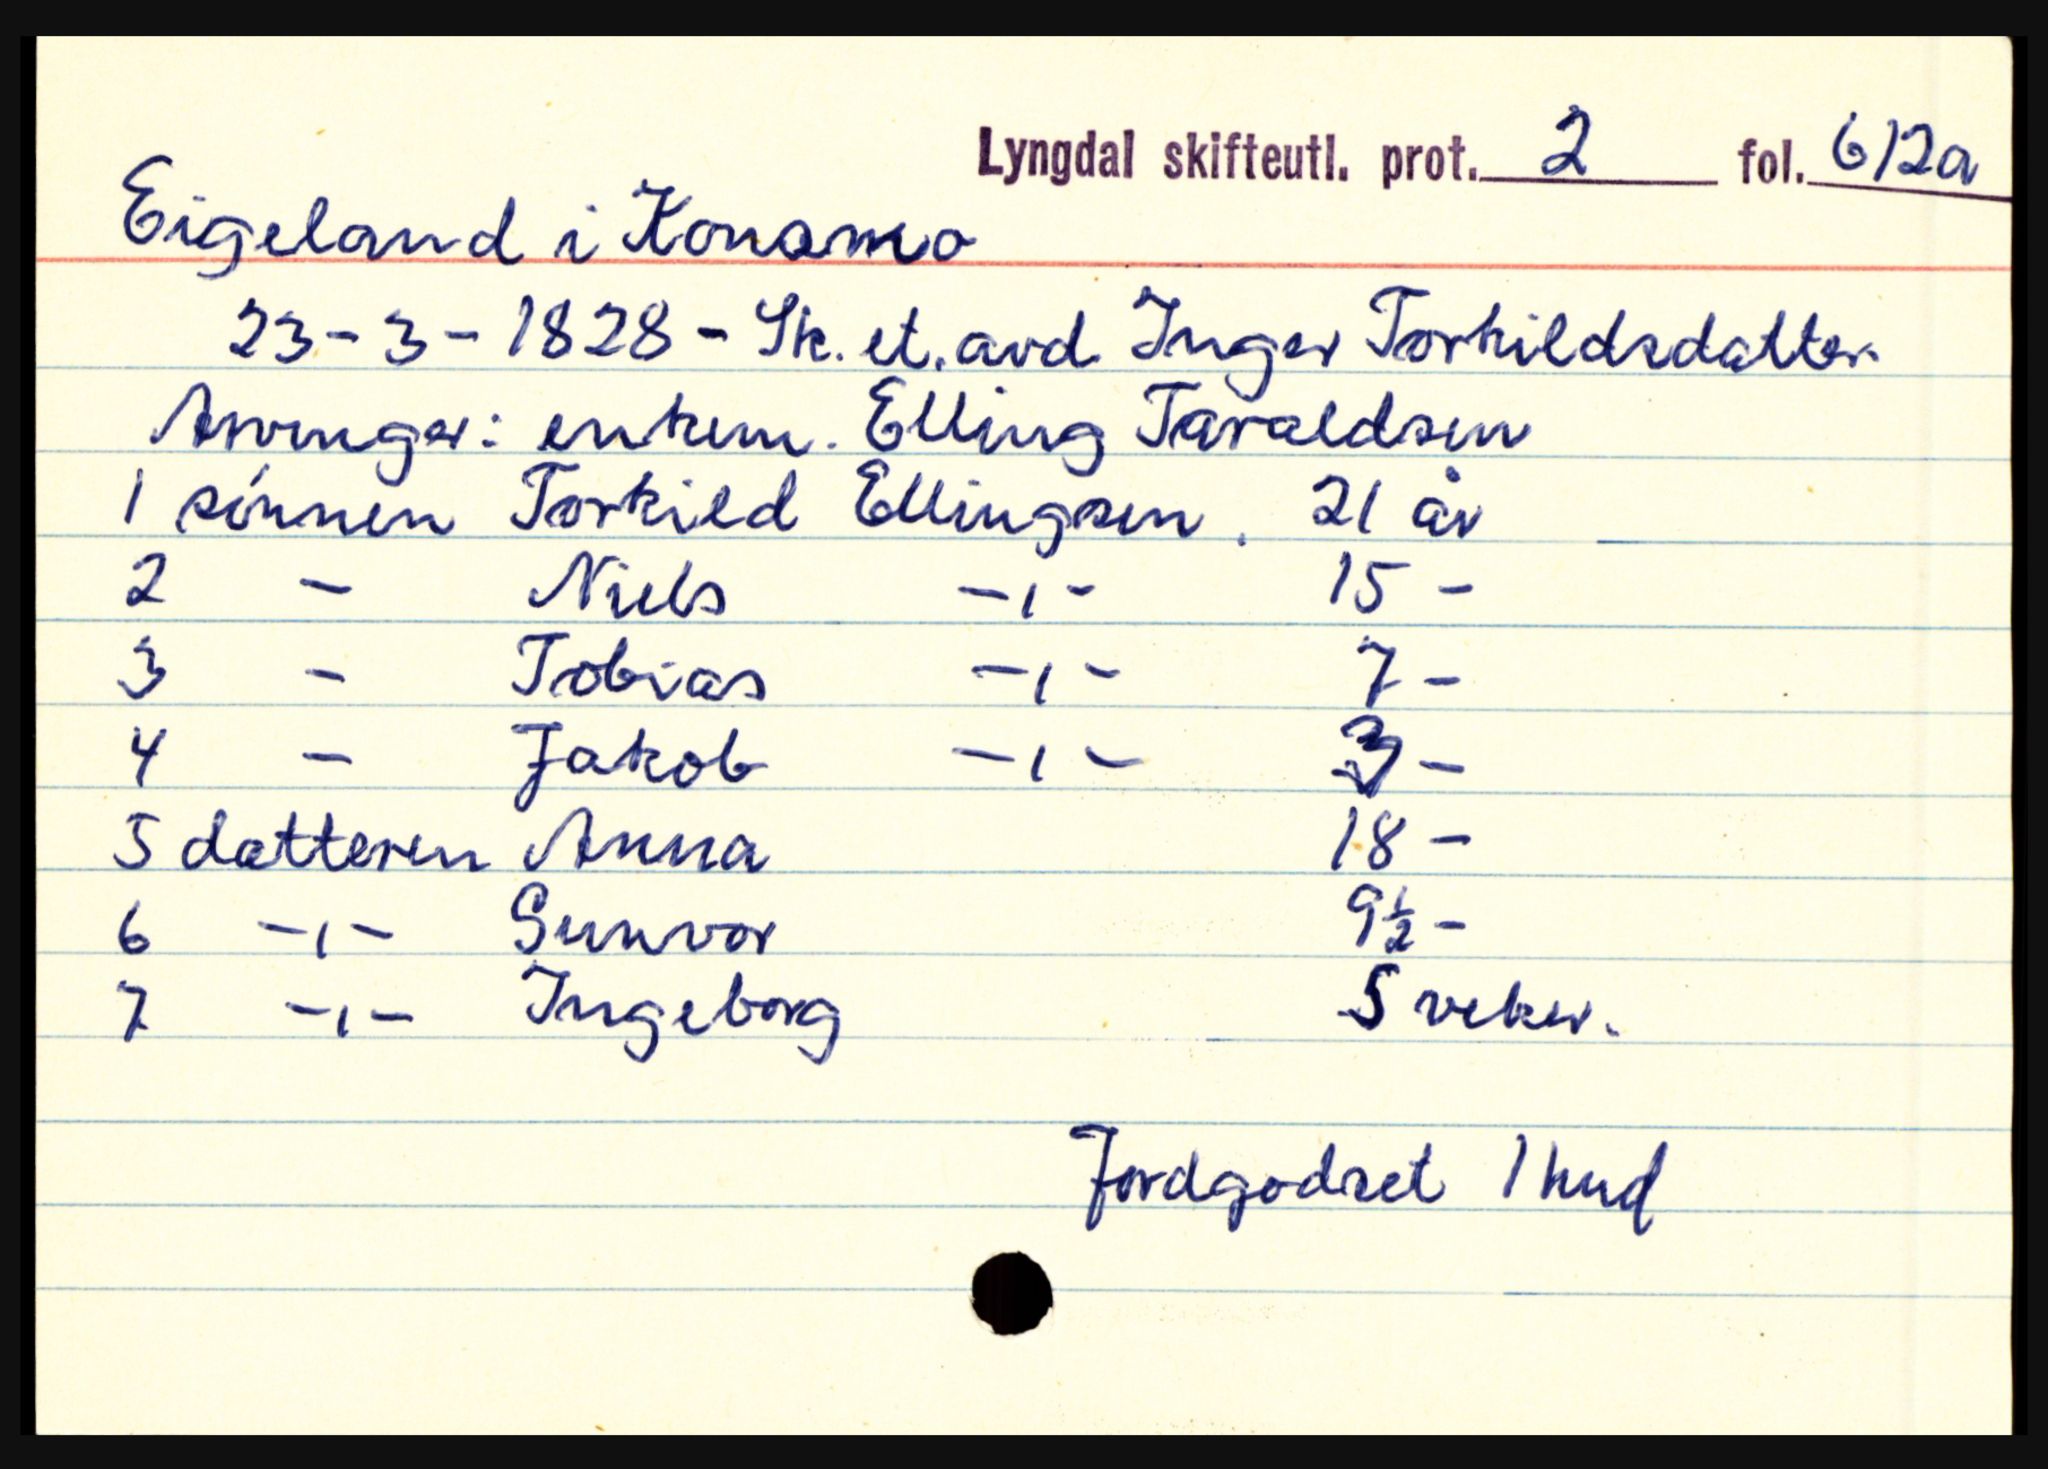 Lyngdal skifteutl. prot. 2 fol. 612a
Eigeland i Konsmo
23-3-1828 - Sk. et. avd. Inger Torkildsdatter.
Arvinger: enkem. Elling Taraldsen
1 sønnen Torkild Ellingsen. 21 år
2 - Niels -ı- 15 -
3 - Tobias -ı- 7 -
4 - Jakob -ı- 3 -
5 datteren Anna 18 -
6 -ı- Gunvor 9½ -
7 -ı- Ingeborg 5 veker.
Jordgodset 1 hud